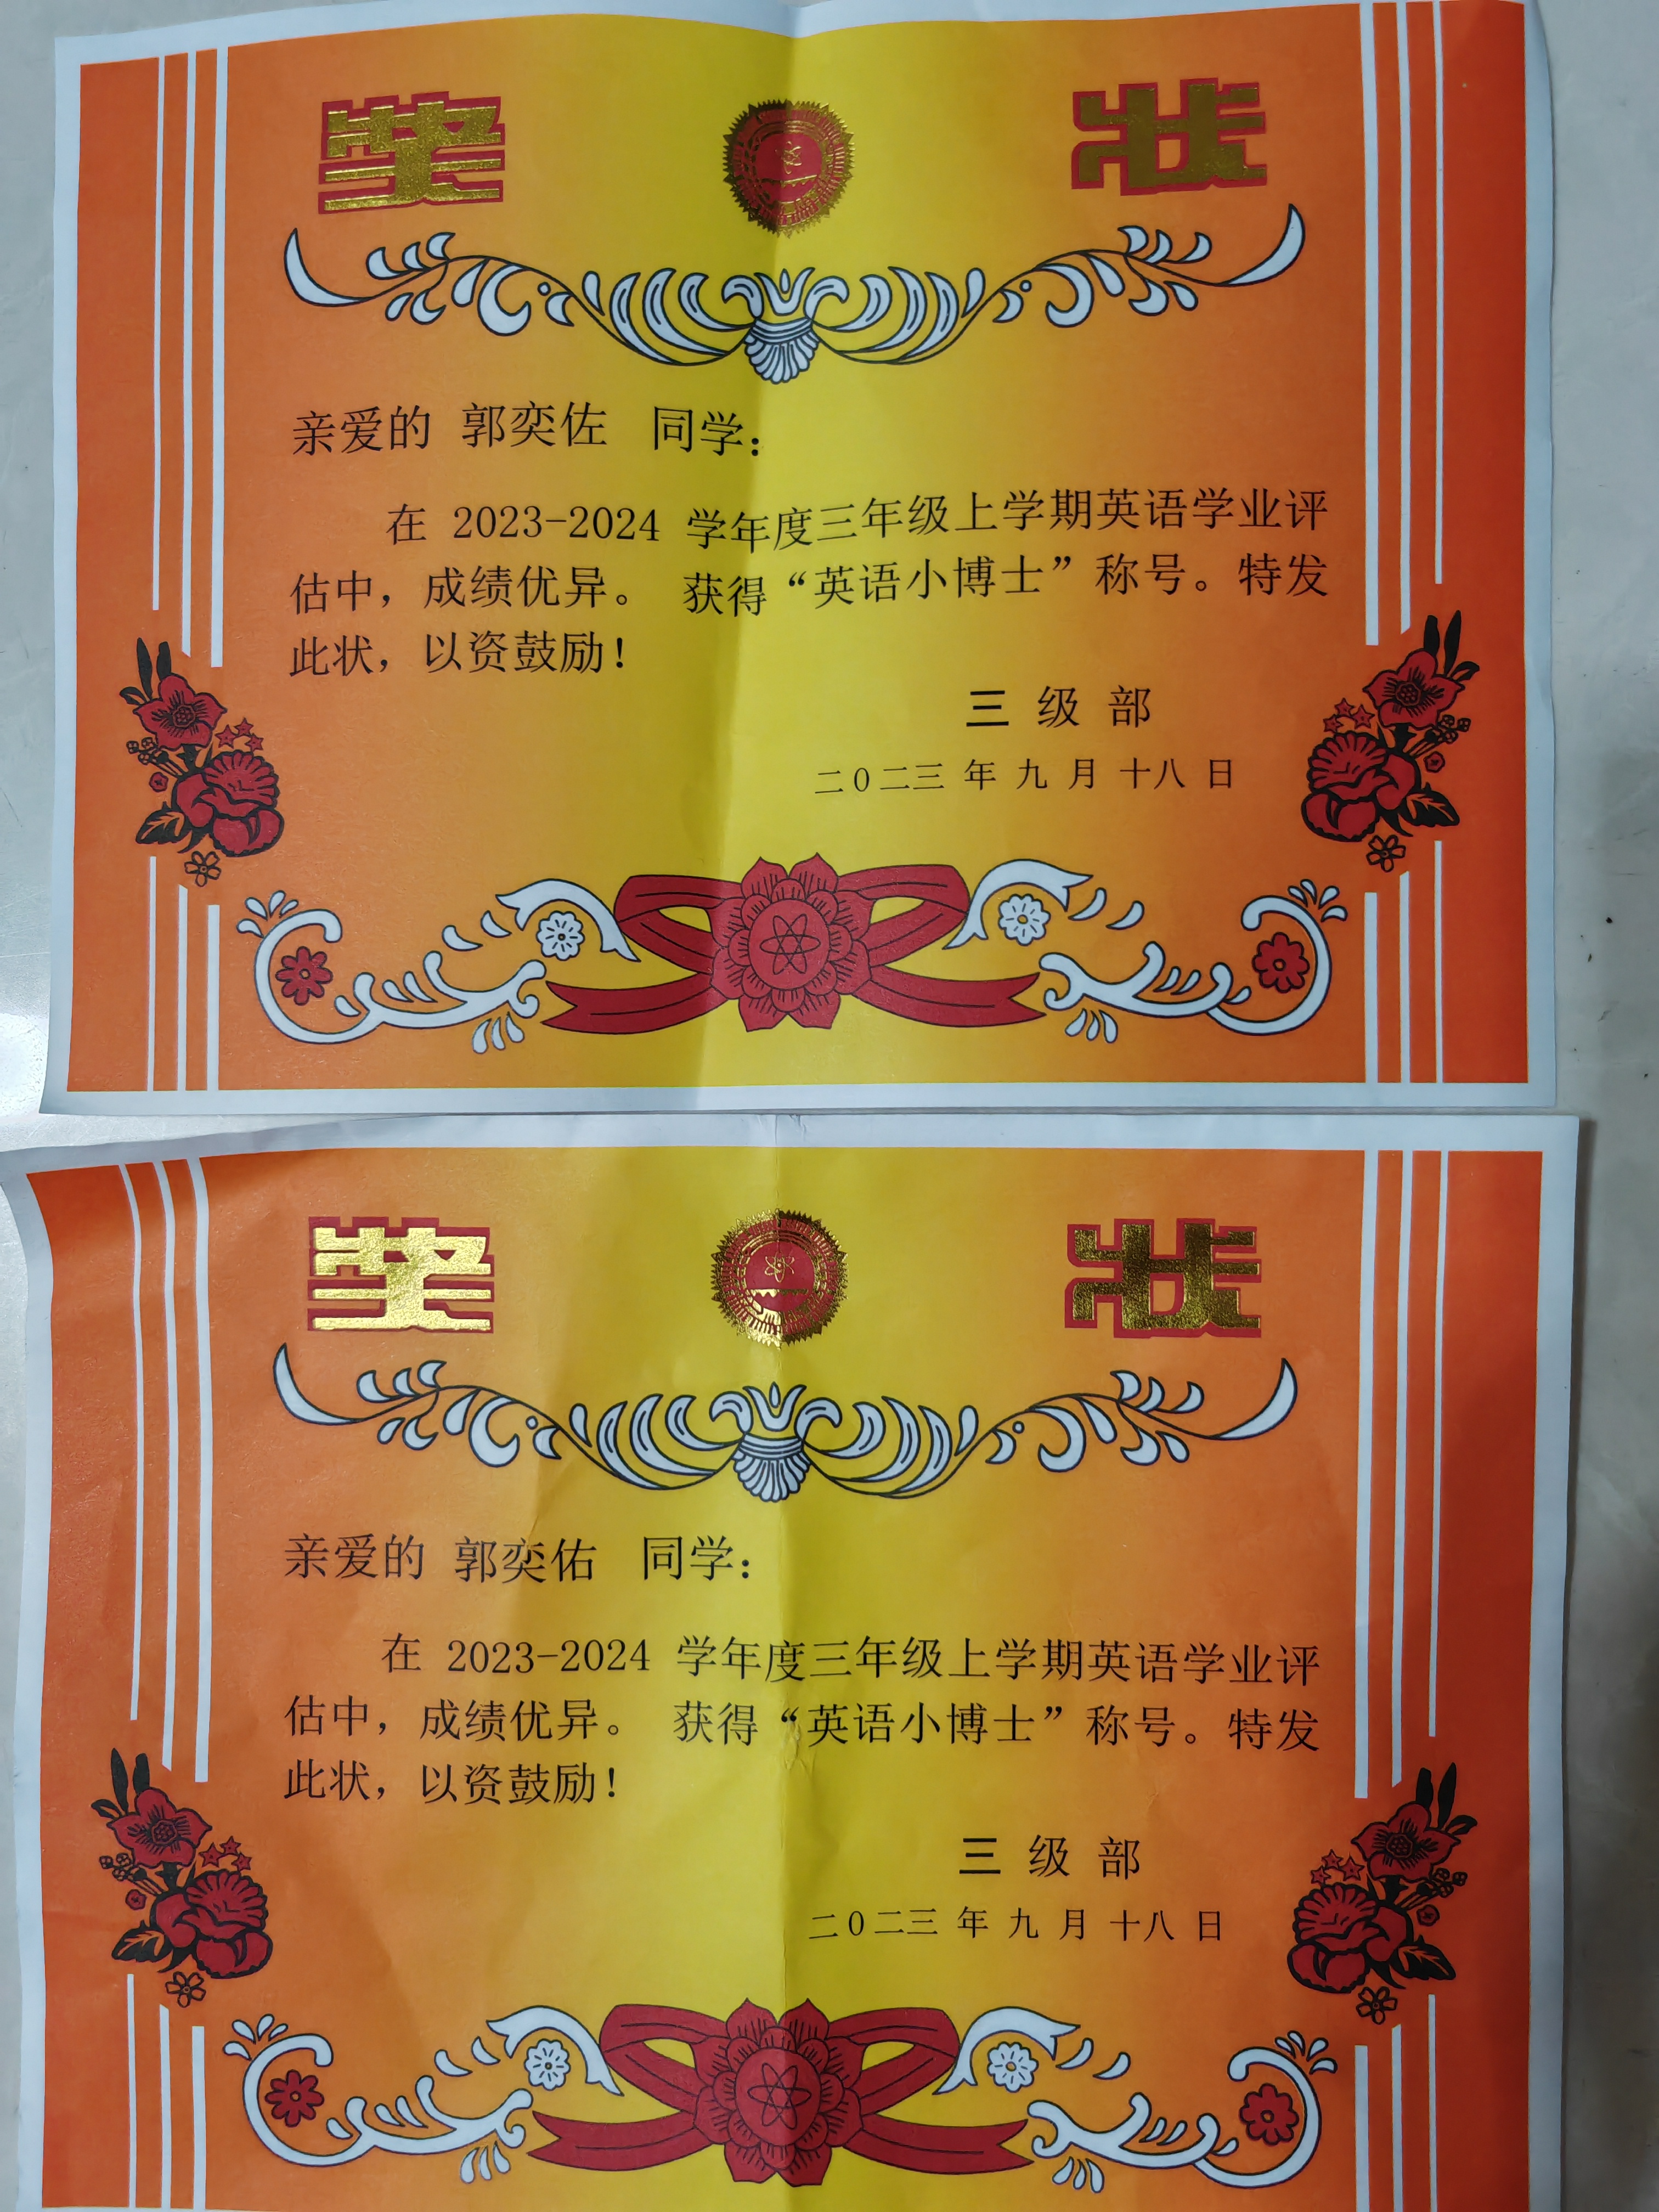 奖 状
亲爱的 郭奕佐 同学：
在 2023-2024 学年度三年级上学期英语学业评
估中，成绩优异。 获得“英语小博士”称号。特发
此状，以资鼓励！
三 级 部
二0二三 年 九 月 十八 日
奖 状
亲爱的 郭奕佑 同学：
在 2023-2024 学年度三年级上学期英语学业评
估中，成绩优异。 获得“英语小博士”称号。特发
此状，以资鼓励！
三 级 部
二0二三 年 九 月 十八 日